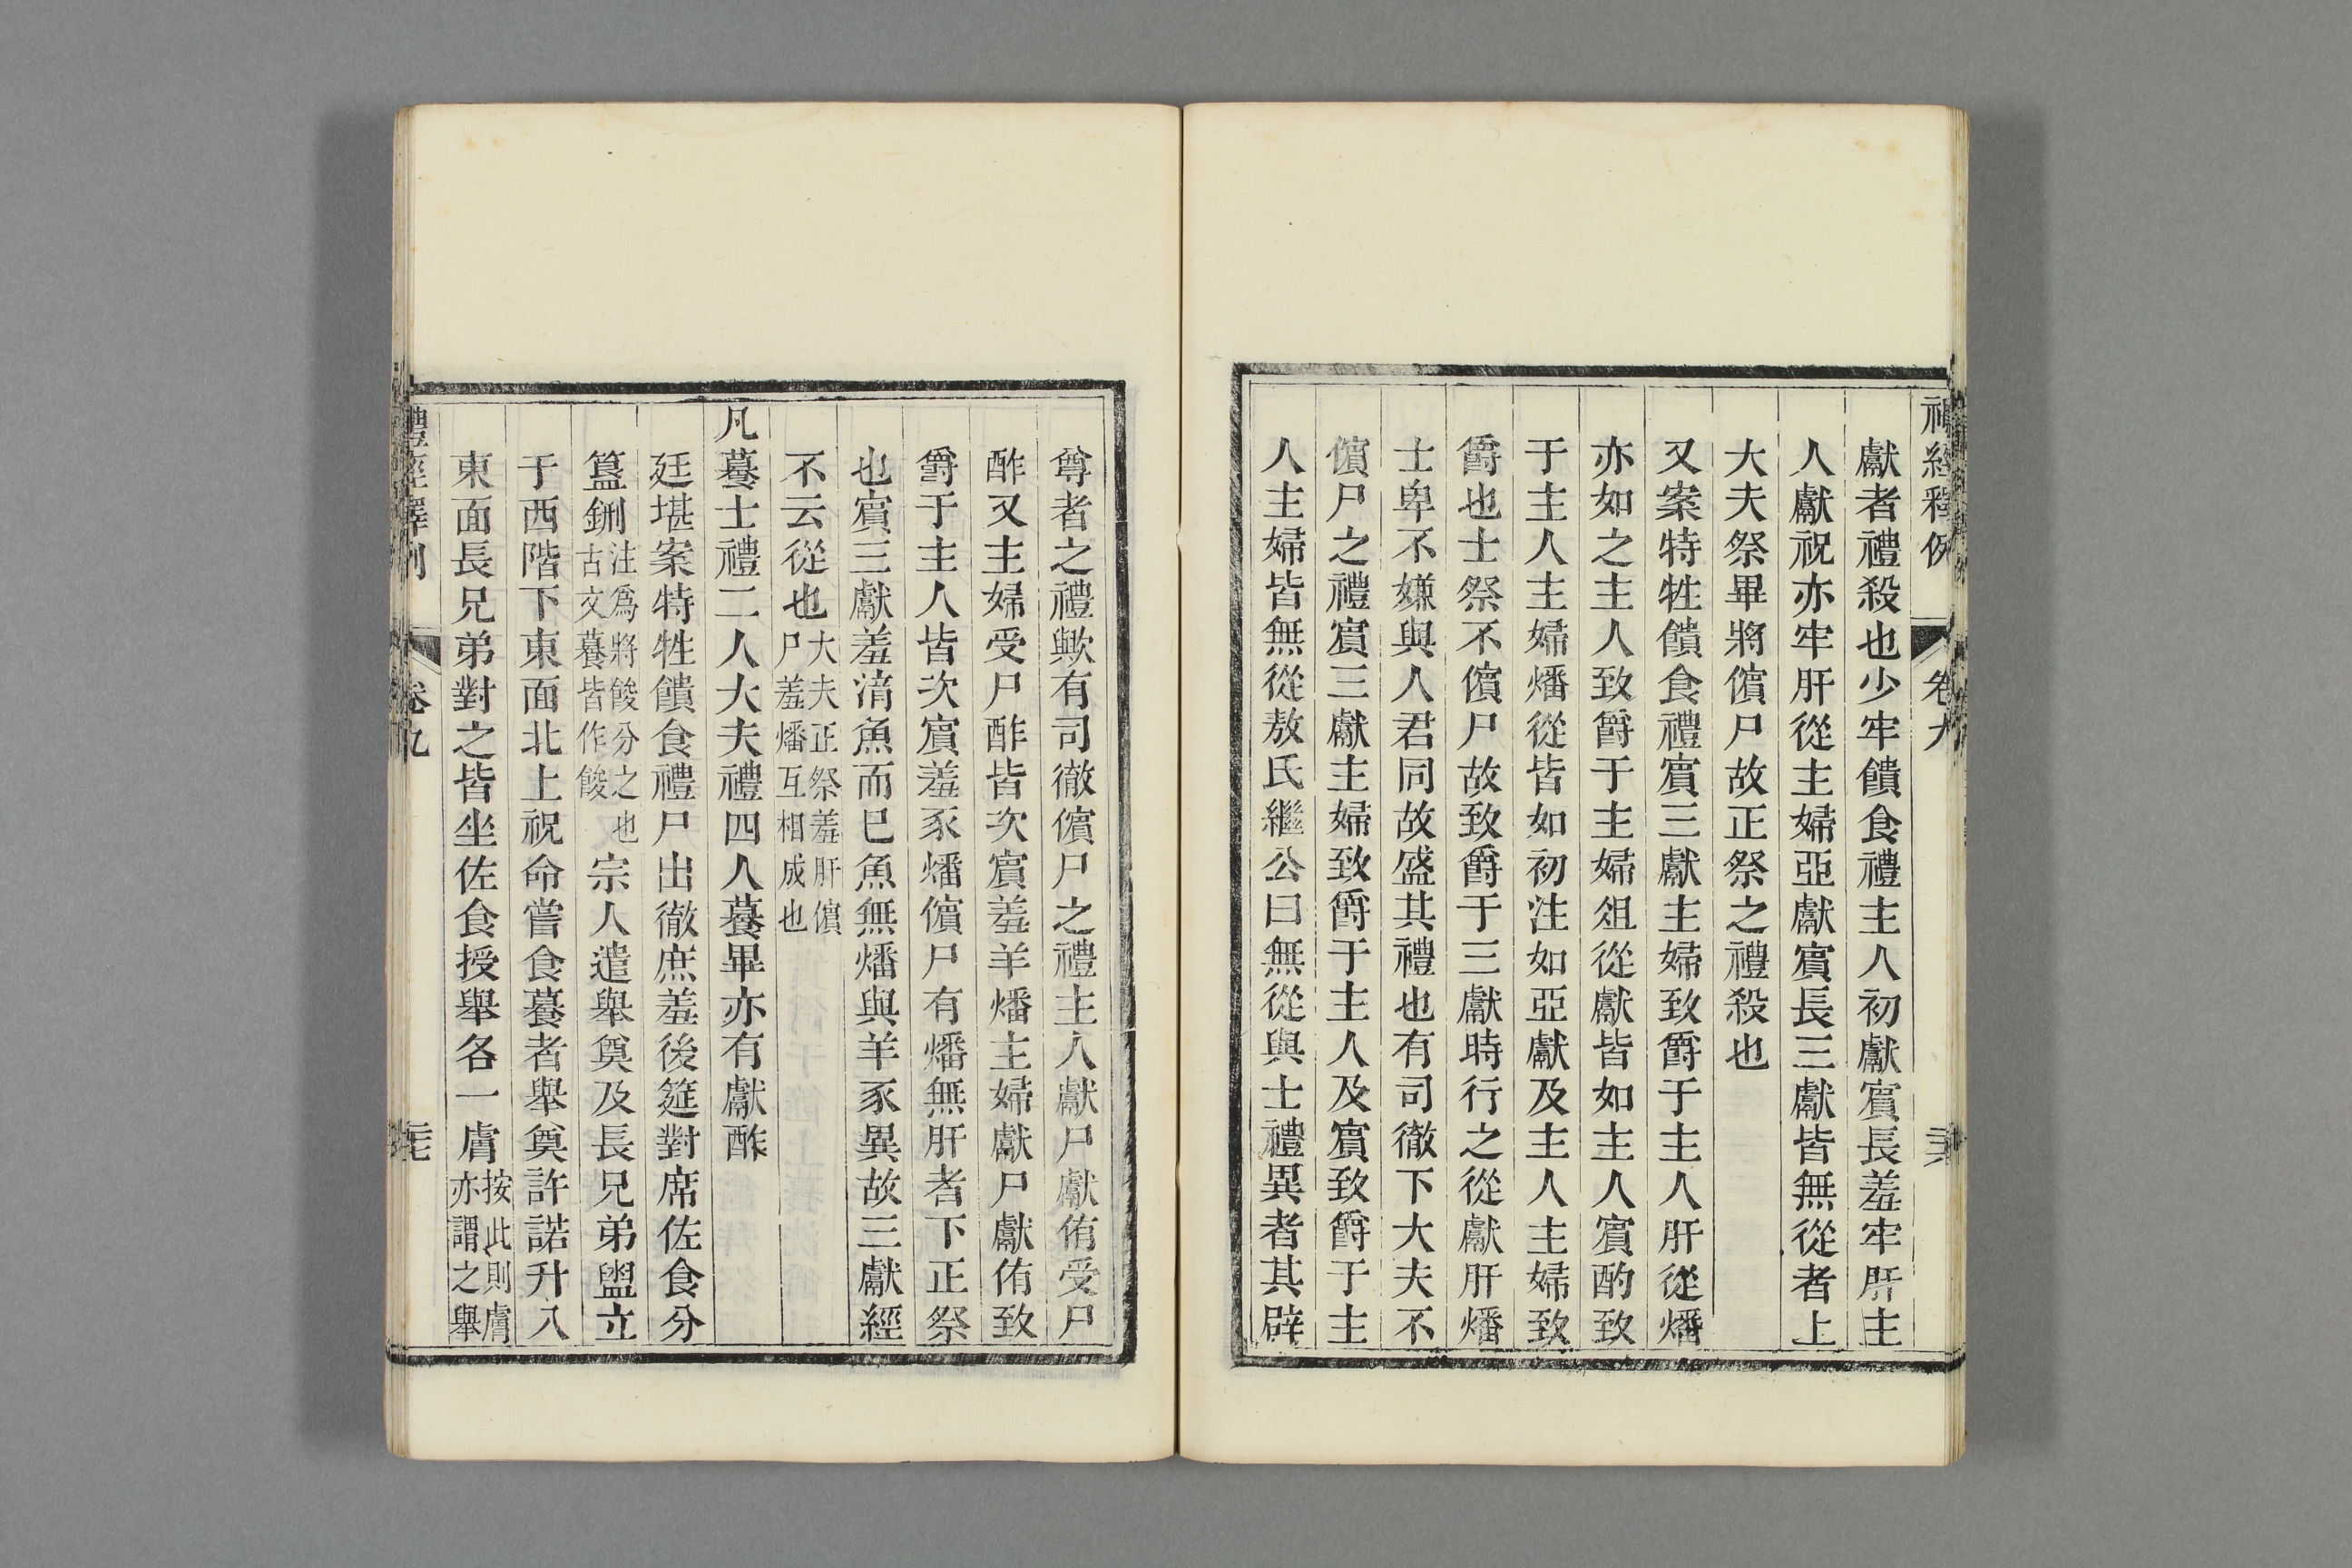 禮經釋例 卷九
獻者禮殺也少牢饋食禮主人初獻賔長羞牢肝主
人獻祝亦牢肝從主婦亞獻賔長三獻皆無從者上
大夫祭畢將儐尸故正祭之禮殺也
又案特牲饋食禮賔三獻主婦致爵于主人肝從燔
亦如之主人致爵于主婦俎從獻皆如主人賔酌致
于主人主婦燔從皆如初注如亞獻及主人主婦致
爵也士祭不儐尸故致爵于三獻時行之從獻肝燔
士卑不嫌與人君同故盛其禮也有司徹下大夫不
儐尸之禮賔三獻主婦致爵于主人及賔致爵于主
人主婦皆無從敖氏繼公曰無從與士禮異者其辟
尊者之禮歟有司徹儐尸之禮主人獻尸獻侑受尸
酢又主婦受尸酢皆次賔羞羊燔主婦獻尸獻侑致
爵于主人皆次賔羞豕燔儐尸有燔無肝者下正祭
也賔三獻羞湇魚而已魚無燔與羊豕異故三獻經
不云從也大夫正祭羞肝儐
尸羞燔互相成也
凡養士禮二人大夫禮四人養畢亦有獻酢
廷堪案特牲饋食禮尸出徹庶羞後筵對席佐食分
簋鉶注爲將餕分之也
古文養皆作餕宗人遣舉奠及長兄弟盥立
于西階下東面北上祝命嘗食養者舉奠許諾升入
東面長兄弟對之皆坐佐食授舉各一膚按此則膚
亦謂之舉
禮經釋例 卷九